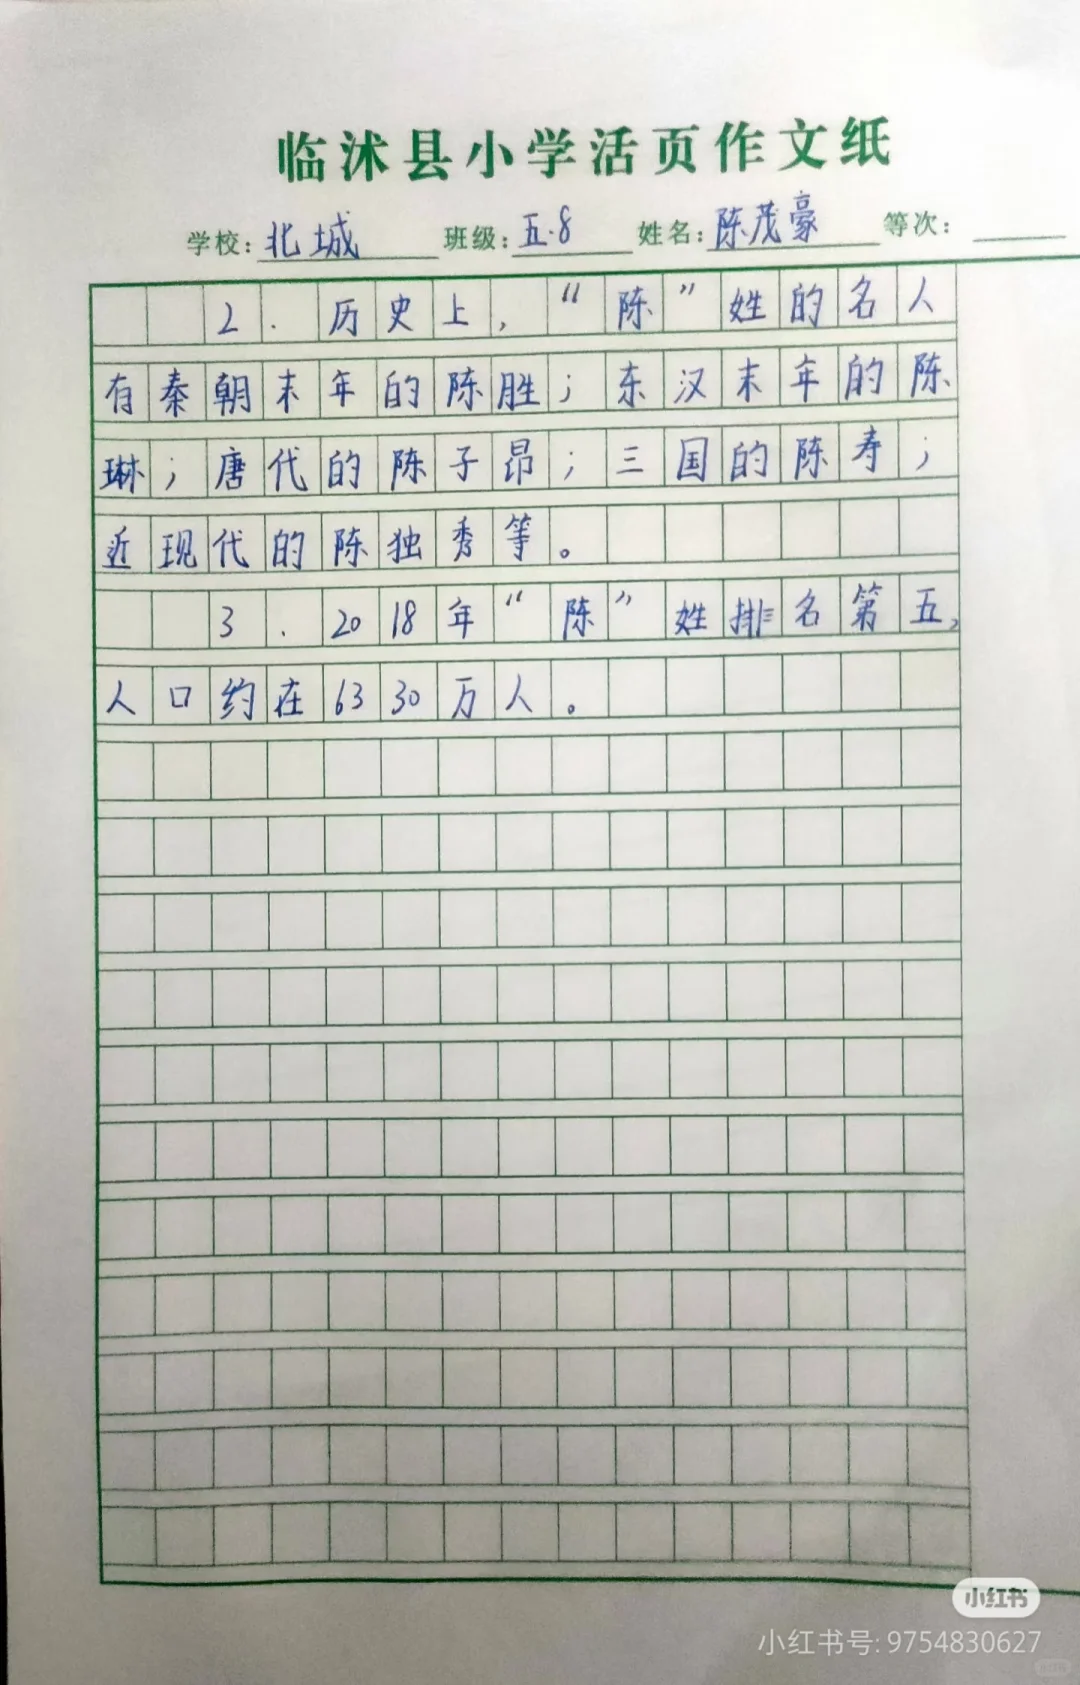 临沭县小学活页作文纸
学校:北城 班级:五.8 姓名:陈茂豪 等次:
2.历史上,“陈”姓的名人
有秦朝末年的陈胜;东汉末年的陈
琳;唐代的陈子昂;三国的陈寿;
近现代的陈独秀等。
3.2018年“陈”姓排名第五,
人口约在6330万人。
小红书
小红书号:9754830627